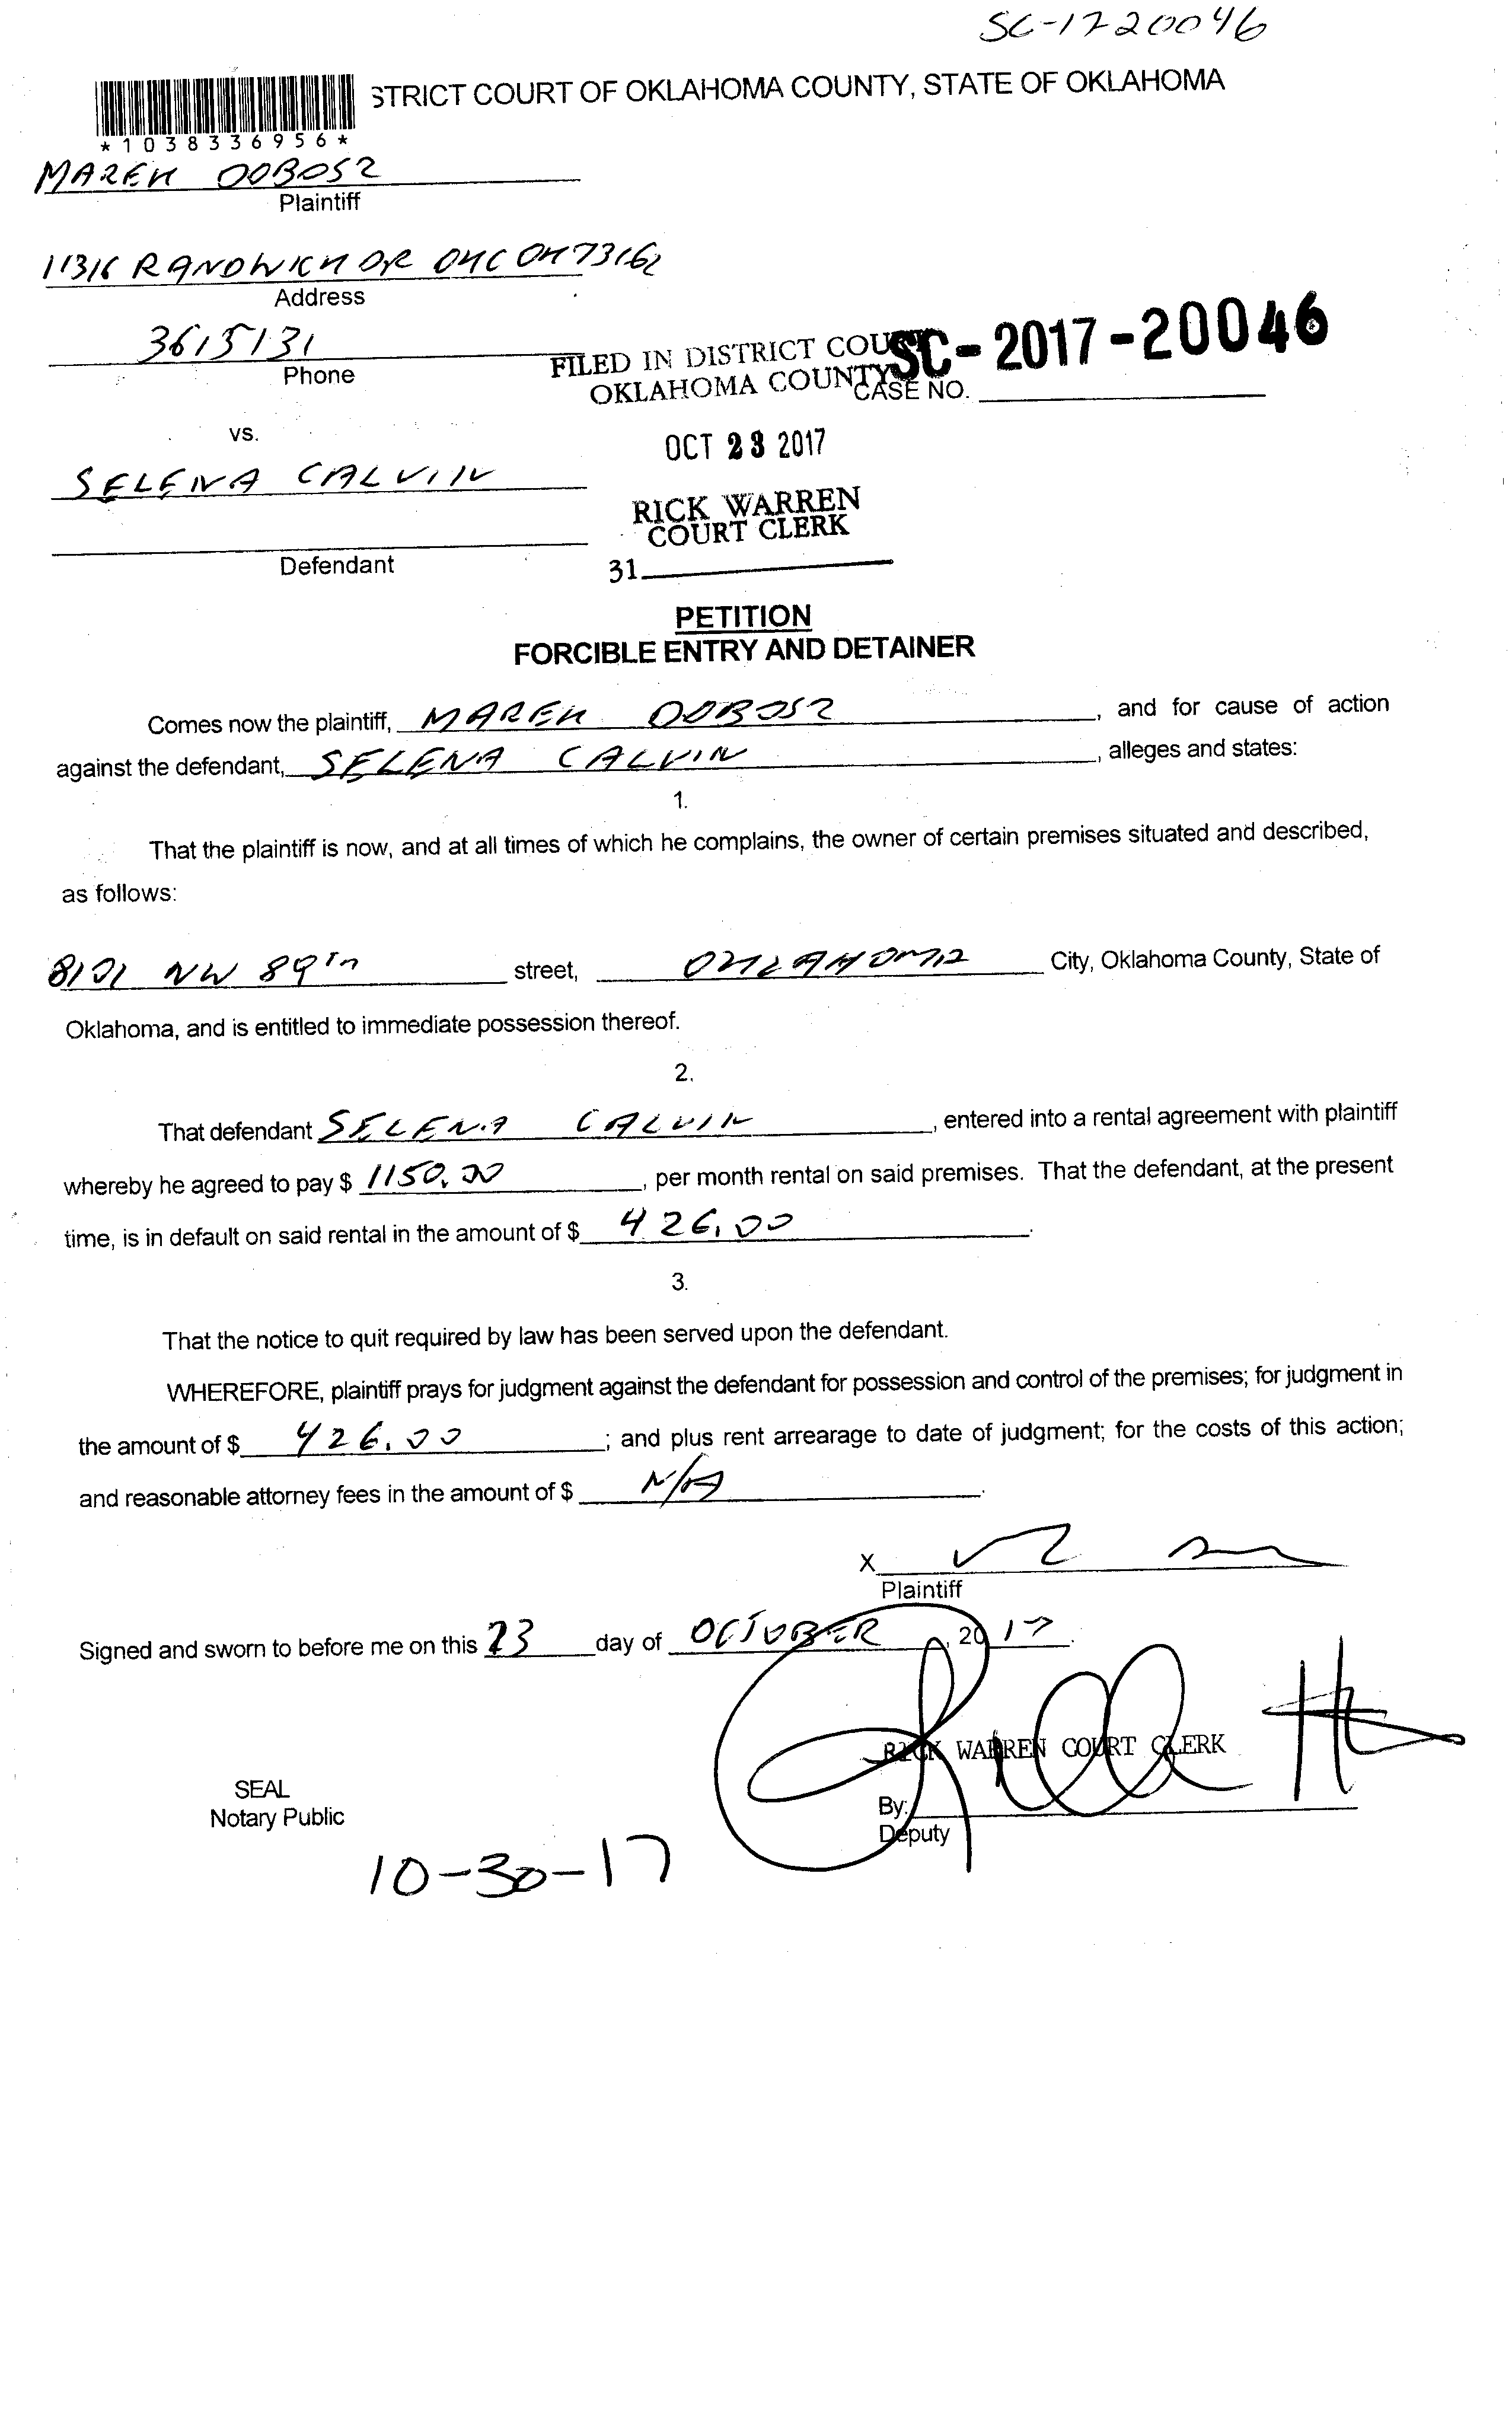 SC-1720046
STRICT COURT OF OKLAHOMA COUNTY, STATE OF OKLAHOMA
*1038336956*
MAREK DOBOSZ
Plaintiff
11316 RANDWICK DR OKC OK 73162
Address
3615131
Phone
FILED IN DISTRICT COURT
OKLAHOMA COUNTY
SC-2017-20046
CASE NO.
vs.
OCT 23 2017
SELENA CALVIN
RICK WARREN
COURT CLERK
Defendant
31
PETITION
FORCIBLE ENTRY AND DETAINER
Comes now the plaintiff, MAREK DOBOSZ, and for cause of action
against the defendant, SELENA CALVIN, alleges and states:
1.
That the plaintiff is now, and at all times of which he complains, the owner of certain premises situated and described,
as follows:
NW 89TH street, OKLAHOMA City, Oklahoma County, State of
Oklahoma, and is entitled to immediate possession thereof.
2.
That defendant SELENA CALVIN, entered into a rental agreement with plaintiff
whereby he agreed to pay $ 1150.00, per month rental on said premises. That the defendant, at the present
time, is in default on said rental in the amount of $ 426.00.
3.
That the notice to quit required by law has been served upon the defendant.
WHEREFORE, plaintiff prays for judgment against the defendant for possession and control of the premises; for judgment in
the amount of $ 426.00; and plus rent arrearage to date of judgment; for the costs of this action;
and reasonable attorney fees in the amount of $ N/A.
X
Plaintiff
Signed and sworn to before me on this 23 day of OCTOBER, 2017.
RICK WARREN COURT CLERK
SEAL
Notary Public
By:
Deputy
10-30-17